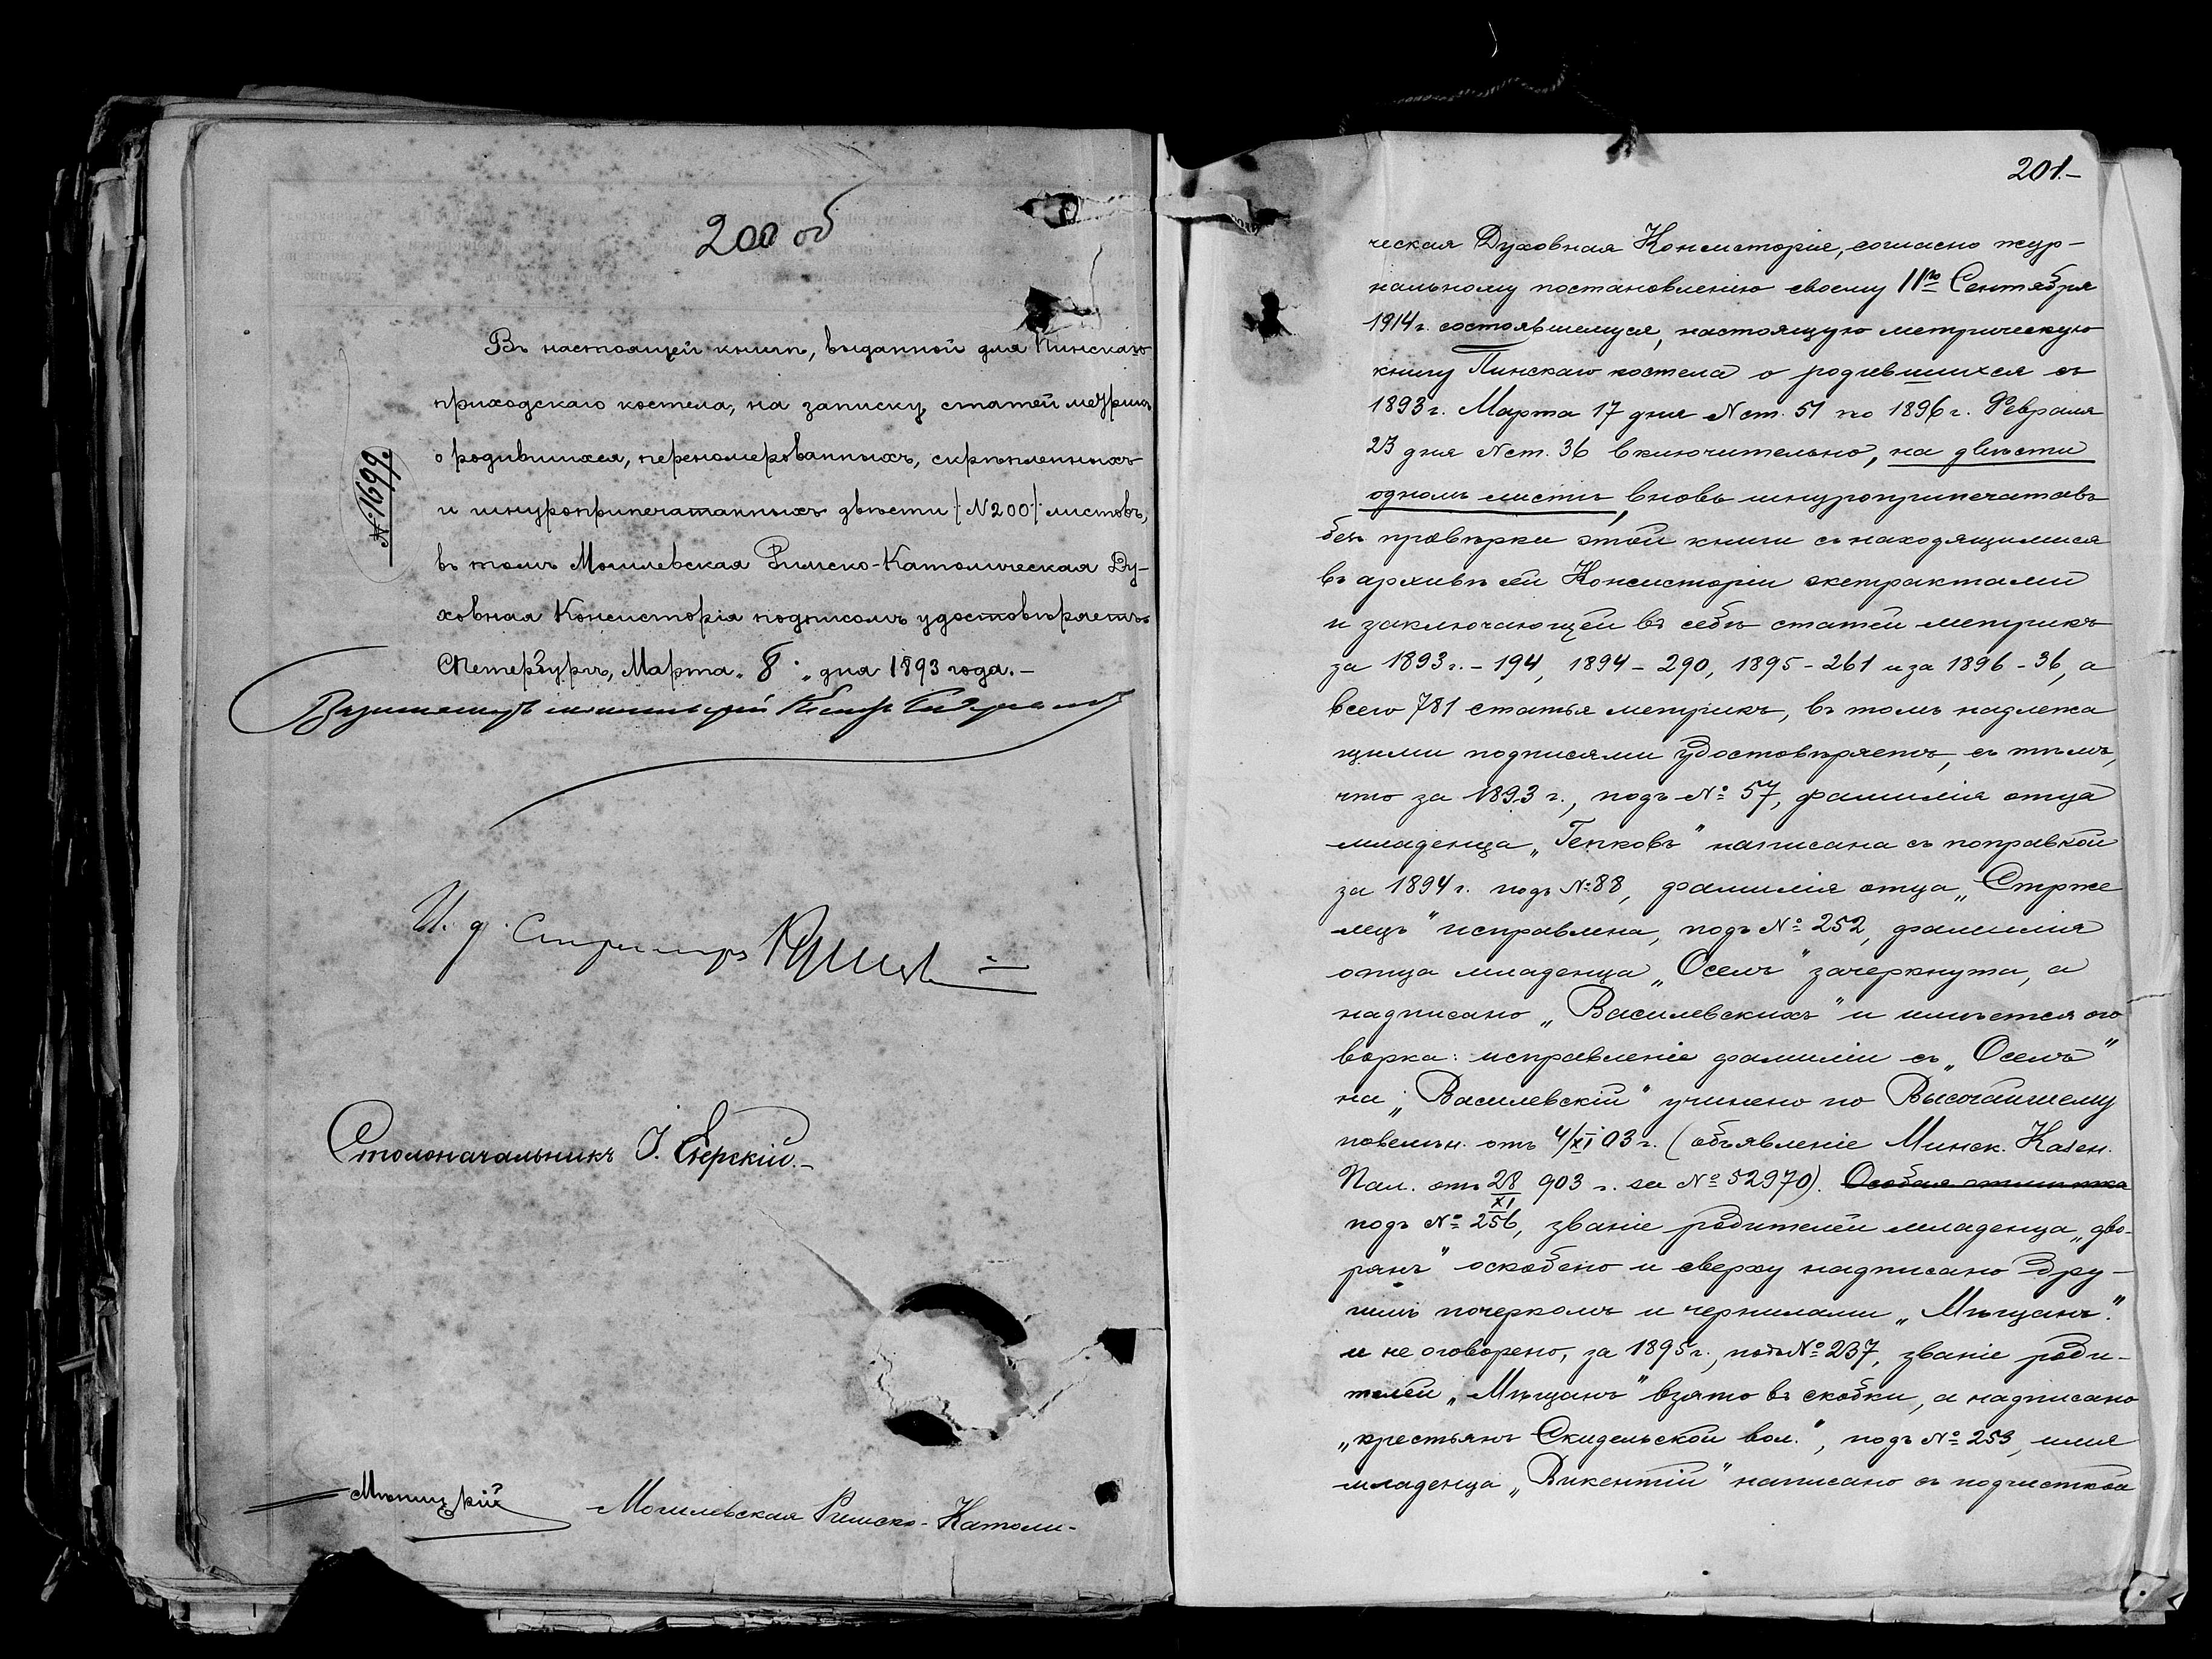 200 об
Въ настоящей книгѣ, выданной для Пинскаго
приходскаго костела, на записку статей метрикъ
о родившихся, перенумерованныхъ, скрѣпленныхъ
и шнуроприпечатанныхъ двѣсти /№200/ листовъ,
въ томъ Могилевская Римско-Католическая Ду-
ховная Консисторія подписомъ удостовѣряетъ
СПетербургъ, Марта „8" дня 1893 года.-
№ 1699.
И. д. Секретаря
Столоначальникъ І.
Могилевская Римско-Католи-
201.-
ческая Духовная Консисторія, согласно жур-
нальному постановленію своему 11го Сентября
1914 г. состоявшемуся, настоящую метрическую
книгу Пинскаго костела о родившихся съ
1893 г. Марта 17 дня № ст. 51 по 1896 г. Февраля
23 дня № ст. 36 включительно, на двѣсти
одномъ листѣ, вновь шнуроприпечатавъ
безъ провѣрки этой книги съ находящимися
въ архивѣ сей Консисторіи экстрактами
и заключающей въ себѣ статей метрикъ
за 1893 г. - 194, 1894 - 290, 1895 - 261 и за 1896 - 36, а
всего 781 статья метрикъ, въ томъ надлежа
щими подписями удостовѣряетъ, съ тѣмъ,
что за 1893 г., подъ № 57, фамилія отца
младенца „Гепковъ" написана съ поправкой
за 1894 г. подъ № 88, фамилія отца „Стрже
лецъ" исправлена, подъ № 252, фамилія
отца младенца „Оселъ" зачеркнута, а
надписано „Василевскихъ" и имѣется ого
ворка: исправленіе фамиліи съ „Оселъ"
на „Василевскій" учинено по Высочайшему
повелѣн. отъ 4/XI 03 г. (объявленіе Минск. Казен.
Пал. отъ 28/XI 903 г. за № 52970). Особая
подъ № 256, званіе родителей младенца „дво-
рянъ" оскоблено и сверху надписано дру-
гимъ почеркомъ и чернилами „Мѣщанъ".
и не оговорено, за 1895 г., подъ № 237, званіе роди-
телей „Мѣщанъ" взято въ скобки, а надписано
„крестьянъ Скидельской вол.", подъ № 253, имя
младенца „Викентій" написано съ подчисткой